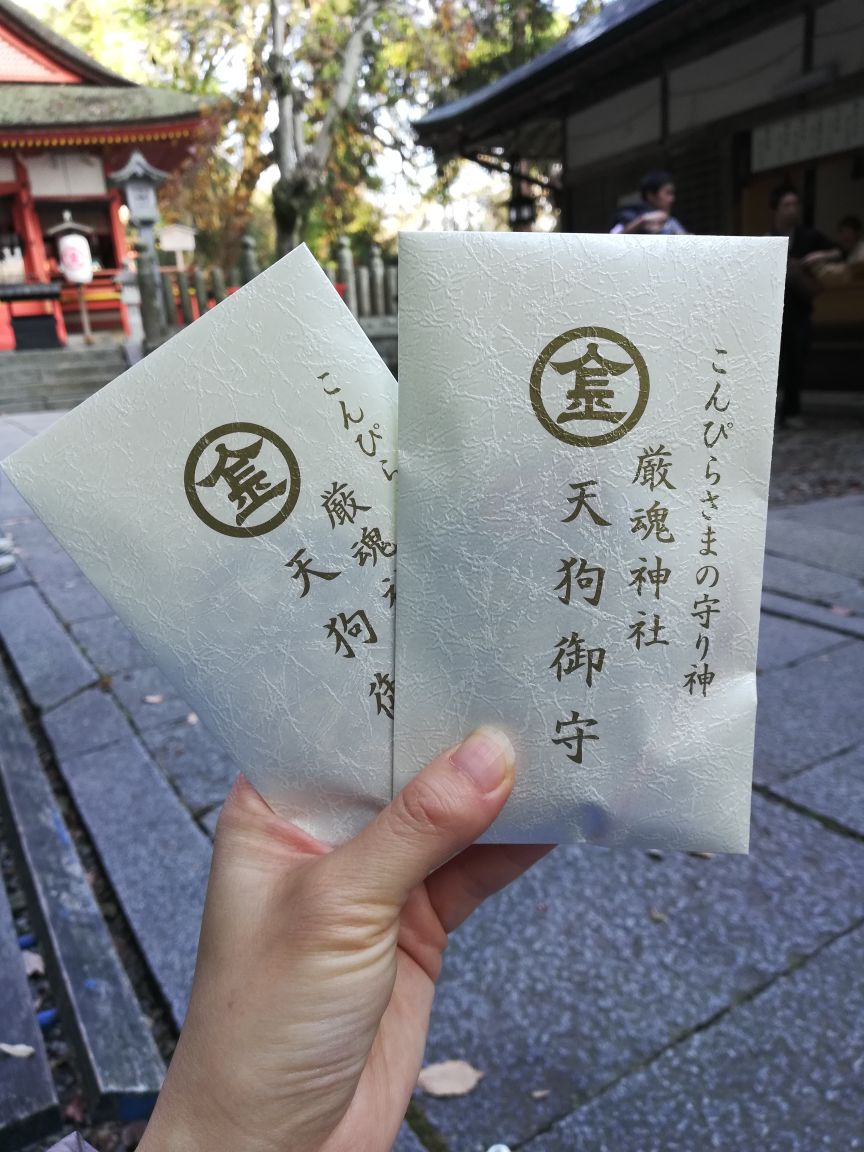 こんぴらさまの守り神
厳魂神社
天狗御守
金
こんぴら
厳魂神
天狗御
金